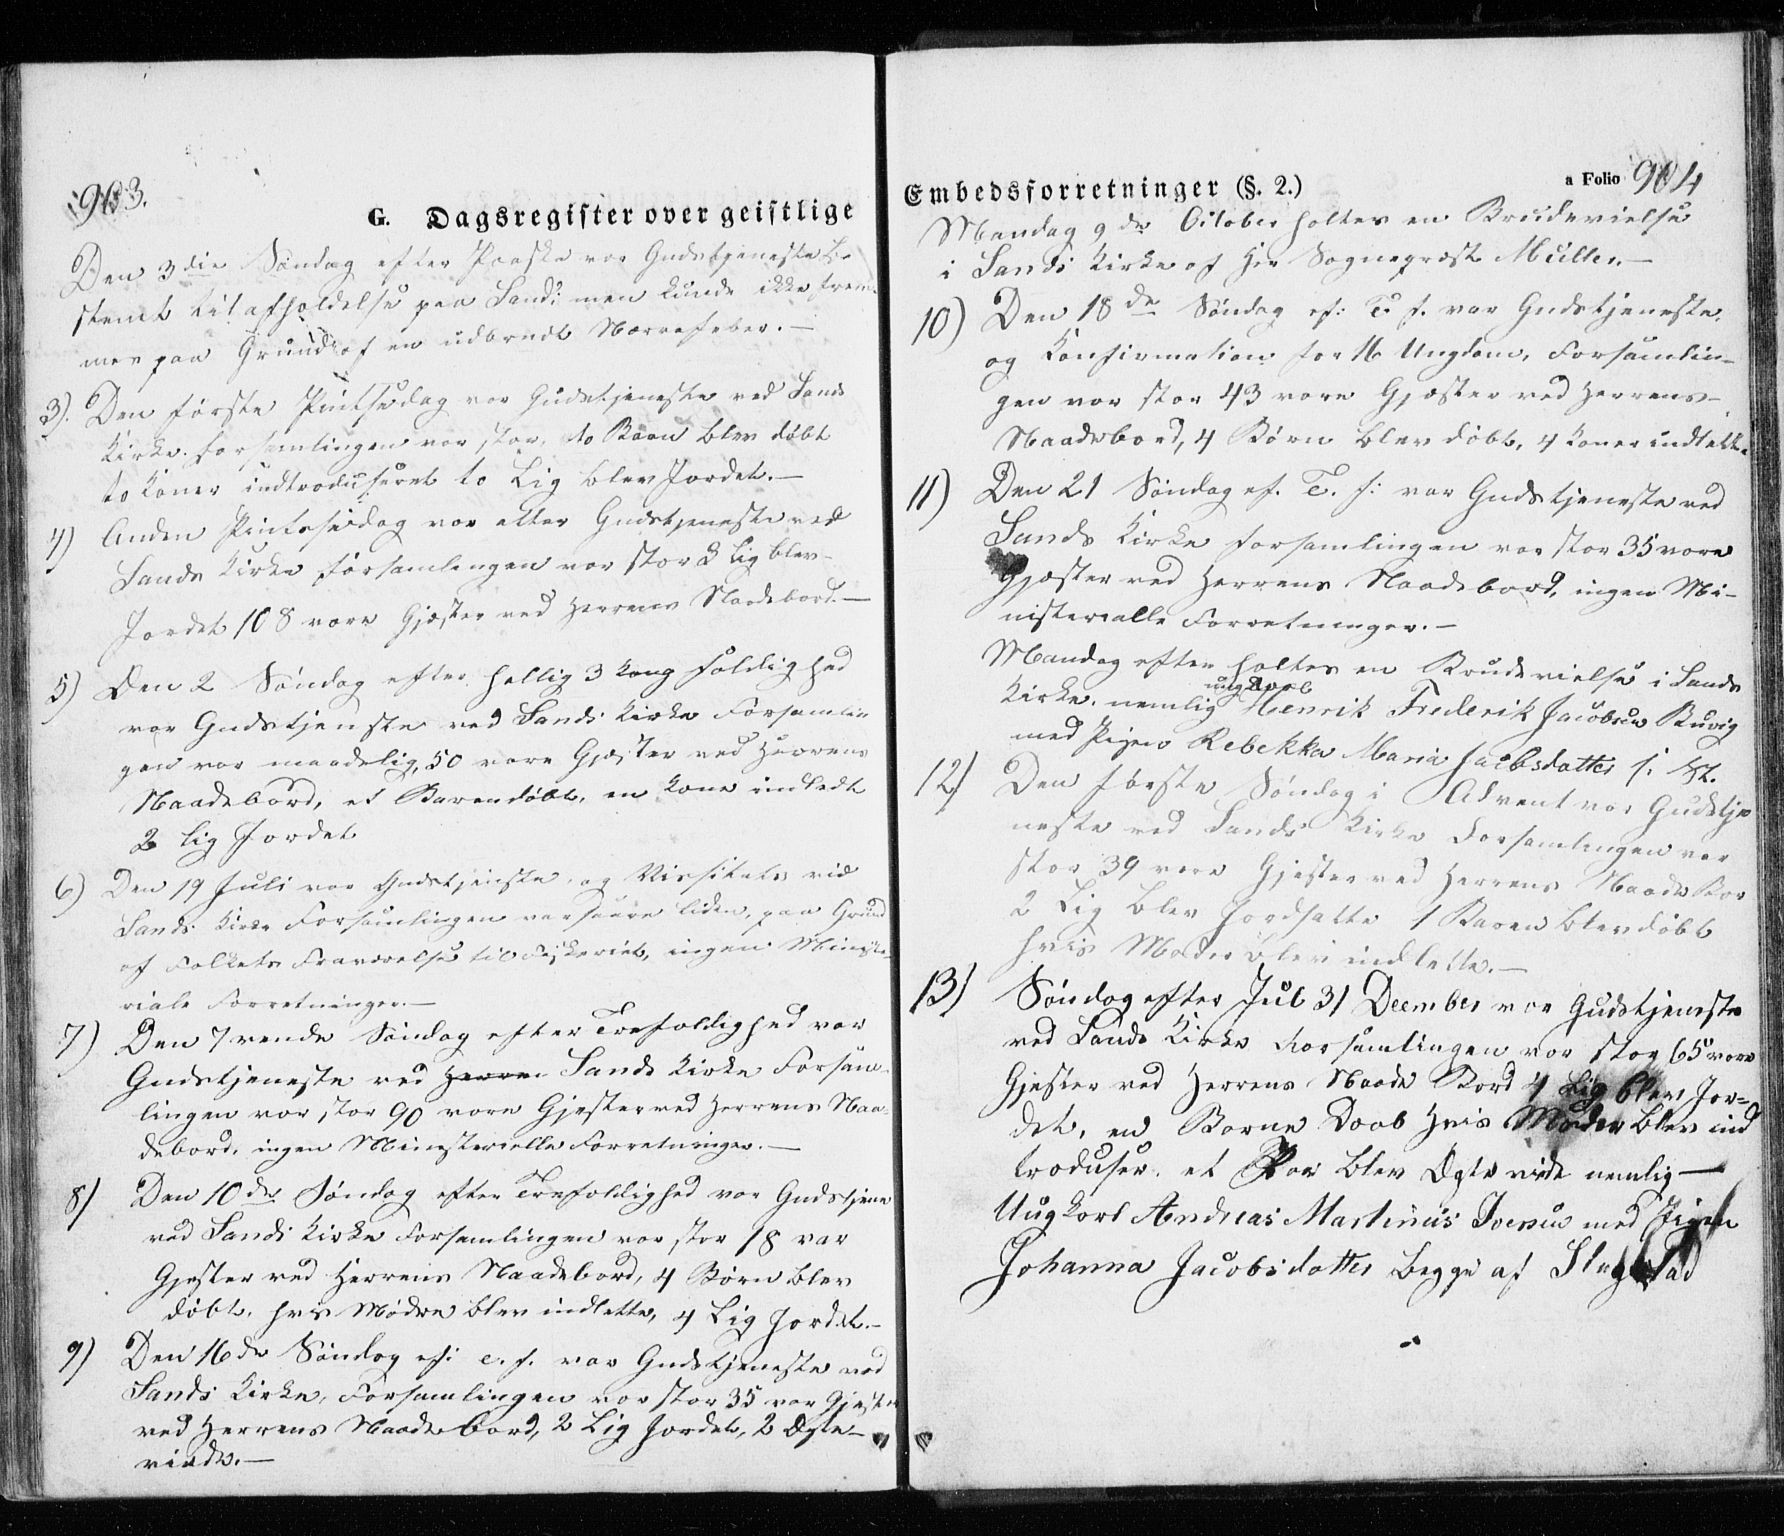 903.
G. Dagsregister over geistlige
Den 3die Søndag efter Paaske var Gudstjeneste be-
stemt til afholdelse paa Sand; men kunde ikke frem-
mes paa Grund af en udbrudt Nærvefeber. —
3). Den første Pintsedag var Gudstjeneste ved Sands
Kirke. forsamlingen var stor, to Børn blev døbt
to Koner indtroduseret to Lig blev Jordet. —
4) Anden Pintsedag var atter Gudstjeneste ved
Sands Kirke forsamlingen var stor 2 Lig blev
Jordet 108 vare Gjæster ved Herrens Naadebord. —
5) Den 2 Søndag efter hellig 3 Kong foldighed
var Gudstjenste ved Sands Kirke Forsamlin
gen var maadelig, 50 vare Gjæster ved Herrens
Naadebord, et Baren døbt, en Kone indledt
2 Lig Jordet
6) Den 19 Juli var Gudstjenste og Visitats ved
Sands Kirke Forsamlingen var saare liden, paa Grund
af Folkets Fraværelse til Fiskeriet, ingen Ministe
riale Forretninger. —
7) Den 7vende Søndag efter Trefoldighed var
Gudstjeneste ved Herren Sands Kirke Forsam-
lingen var stor 90 vare Gjester ved Herrens Naa-
debord, ingen Ministerielle Forretninger. —
8) Den 10de Søndag efter Trefoldighed var Gudstjene
ved Sands Kirke Forsamlingen var stor 18 var
Gjester ved Herrens Naadebord, 4 Børn blev
døbt, hvis Mødre blev indlette, 4 Lig Jordet. —
9) Den 16de Søndag ef: e. f. var Gudstjeneste ved
Sands Kirke, Forsamlingen var stor 35 var Gjester
ved Herrens Naadebord, 2 Lig Jordet, 2 Ægte-
viede. —
Embedsforretninger (§. 2.)
a Folio 904
Mandag 9de October holtes en Brudevielse
i Sands Kirke af Hr Sognepræst Müller. —
10) Den 18de Søndag ef: T. f. var Gudstjeneste,
og Konfirmation for 16 Ungdom, Forsamlin-
gen var stor 43 vare Gjæster ved Herrens
Naadebord, 4 Børn blev døbt, 4 Koner indlette
11) Den 21 Søndag ef. T. f: var Gudstjeneste ved
Sands Kirke forsamlingen var stor 35 vare
Gjæster ved Herrens Naadebord, ingen Mi-
nisterialle Forretninger. —
Mandag efter holtes en Brudevielse i Sands
ungkarl
Kirke, nemlig Henrik Frederik Jacobsen Buvig
med Pigen Rebekka Maria Jacobsdatter
12) Den første Søndag i Advent var Gudstje
neste ved Sands Kirke Forsamlingen var
stor 39 vare Gjester ved Herrens Naade Bor
2 Lig blev Jordsatte 1 Baren blev døbt
hvis Moder blev indlette. —
13) Søndag efter Jul 31 Deember var Gudstjeneste
ved Sands Kirke Forsamlingen var stor 65 vare
Gjester ved Herrens Naade Bord 4 Lig blev Jor=
det, en Barne Daab Hvis Moder blev ind
troduser. et Par blev Ægte viede nemlig —
Ungkarl Andreas Martinus Iversen med Pigen
Johanna Jacobsdatter begge af Slagstad